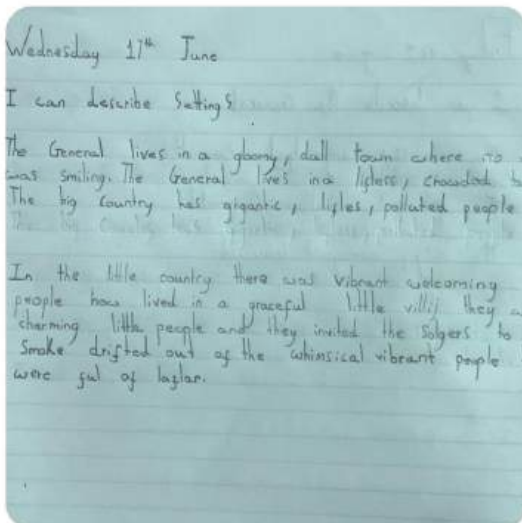 Wednesday 17th June
I can describe Settings
The General lives in a gloomy, dall town where no
was smiling. The General lives in a lifless, crowdad
The big Country has gigantic, lifles, polluted people
In the little country there was vibrant welcoming
people how lived in a graceful little villij they
charming little people and they invited the Solgers to
Smoke drifted out of the whimsical vibrant people
were ful of laflar.